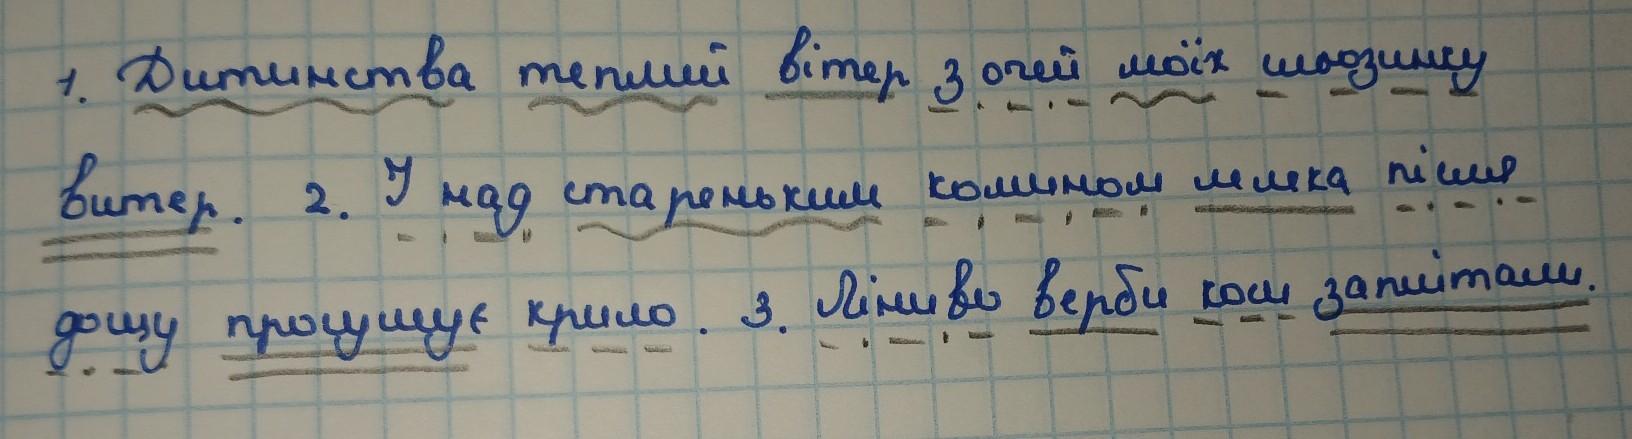 1. Дитинства теплий вітер з очей моїх сльозинку
витер. 2. І над стареньким комином лелека після
дощу просушує крило. 3. Ліниво верби коси заплітали.